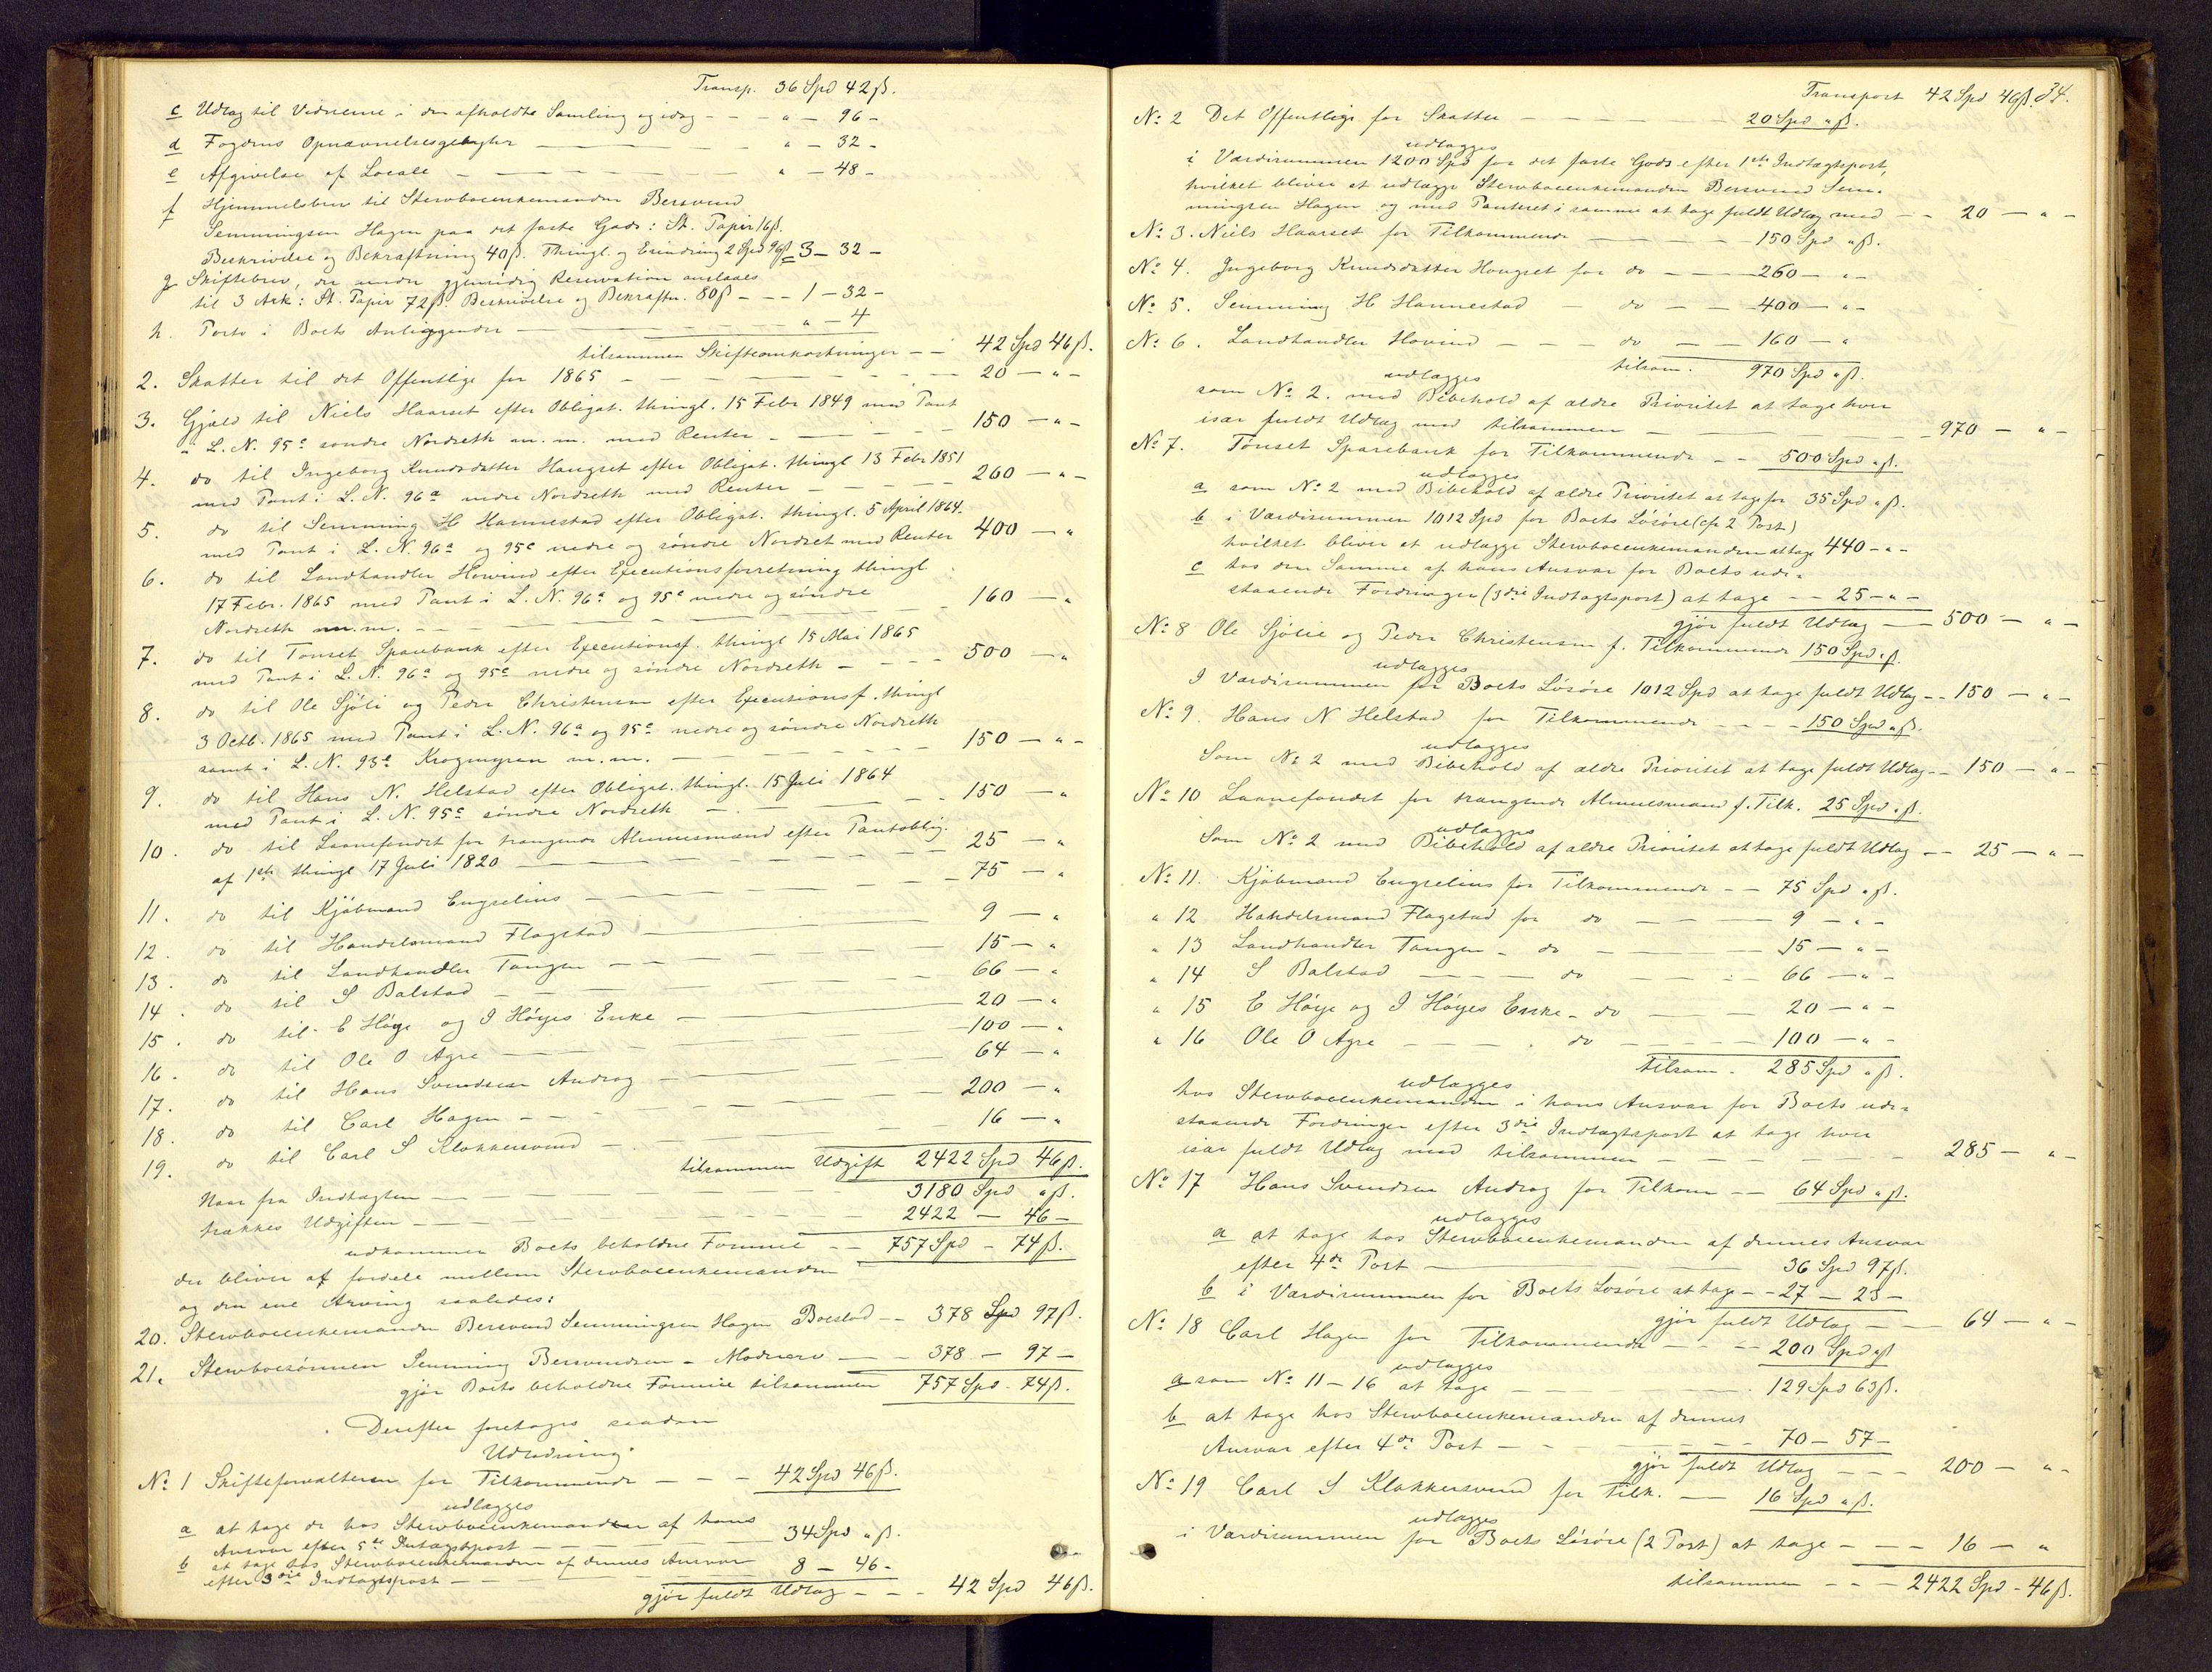 Transp. 36 Spd 42 ß.
c Udlæg til Vidnerne i den afholdte Samling og idag - - - „ - 96 -
d Fogdens Opnævnelsesgebyhr — — — „ - 32 -
e Afgivelse af Locale — — — „ - 48 -
f Hjemmelsbrev til Stervboenkemanden Bersvend
Semmingsen Hagen paa det faste Gods: St. Papir 16 ß.
Beskrivelse og Bekræftning 40 ß. Thingl. og Erindring 2 Spd 96 ß = 3 - 32 -
g Skiftebrev, der under gjensidig Reservation anslaaes
til 3 Ark: St. Papir 72 ß Beskrivelse og Bekræftn. 80 ß - - - 1 - 32 -
h. Porto i Boets Anliggender — — — „ - 4
tilsammen Skifteomkostninger - - 42 Spd 46 ß.
2. Skatter til det Offentlige for 1865 - - - 20 - „ -
3. Gjæld til Niels Haarset efter Obligat. thingl. 15 Febr 1849 med Pant
i L. N. 95c søndre Nordseth m. m. med Renter - - - 150 - „ -
4. do til Ingeborg Knudsdatter Haugset efter Obligat. thingl 13 Febr 1851
med Pant i L. N. 96a nedre Nordseth med Renter - - - 260 - „ -
5. do til Semming H Hannestad efter Obligat. thingl. 5 April 1864.
med Pant i L. N. 96a og 95c nedre og søndre Nordset med Renter 400 - „
6. do til Landhandler Hovind efter Executionsforretning thingl.
17 Febr. 1865 med Pant i L. N. 96a og 95c nedre og søndre
Nordseth m. m. - - - 160 - „
7. do til Tønset Sparebank efter Executionsf. thingl 15 Mai 1865
med Pant i L. N. 96a og 95c nedre og søndre Nordseth - - - 500 - „
8. do til Ole Sjøli og Peder Christensen efter Executionsf. thingl
3 Octb. 1865 med Pant i L. N. 96a og 95c nedre og søndre Nordseth
samt i L. N. 93e Krogmyren m. m. - - - 150 - „ -
9. do til Hans N. Helstad efter Obligat. thingl. 15 Juli 1864
med Pant i L. N. 95c søndre Nordseth - - - 150 - „
10. do til Laanefondet for trængende Almuesmænd efter Pantoblig.
af 1ste thingl 17 Juli 1820 - - - 25 - „
11. do til Kjøbmand Engzelius - - - 75 - „
12. do til Handelsmand Flagstad - - - 9 - „
13. do til Landhandler Tangen - - - 15 - „
14. do til S Balstad - - - 66 - „
15. do til E Høye og I Høyes Enke - - - 20 - „
16. do til Ole O Agre - - - 100 - „
17. do til Hans Svendsen Androg - - - 64 - „
18. do til Carl Hagen - - - 200 - „
19. do til Carl S Klokkersvend - - - 16 - „
tilsammen Udgift 2422 Spd 46 ß.
Naar fra Indtægten - - - 3180 Spd „ ß.
trækkes Udgiften - - - 2422 - 46 -
udkommer Boets beholdne Formue - - 757 Spd - 74 ß.
der bliver at fordele mellem Stervboenkemanden
og den ene Arving saaledes:
20. Stervboenkemanden Bersvend Semmingsen Hagen Boeslod - - 378 Spd 97 ß.
21. Stervboesønnen Semming Bersvendsen - Mødrearv - - 378 - 97 -
gjør Boets beholdne Formue tilsammen 757 Spd - 74 ß.
Derefter foretoges saadan
Udlodning:
No 1 Skifteforvalteren for Tilkommende - - - 42 Spd 46 ß.
udlægges
a at tage hos Stervboenkemanden af hans
Ansvar efter 5te Indtægtspost - - - 34 Spd „ ß.
b at tage hos Stervboenkemanden af dennes Ansvar
efter 3die Indtægtspost - - - 8 - 46 -
gjør fuldt Udlæg - - - 42 Spd 46 ß.
Transport 42 Spd 46 ß. 34.
No 2 Det Offentlige for Skatter - - - 20 Spd „ ß.
udlægges
i Værdisummen 1200 Spd for det faste Gods efter 1ste Indtægtspost,
hvilket bliver at udlægge Stervboenkemanden Bersvend Sem-
mingsen Hagen og med Panteret i samme at tage fuldt Udlæg med - - 20 - „ -
No 3. Niels Haarset for Tilkommende - - - 150 Spd „ ß.
No 4. Ingeborg Knudsdatter Haugset for do - - - 260 - „ -
No 5. Semming H Hannestad - do - - 400 - „ -
No 6. Landhandler Hovind - - - do - 160 - „
tilsam. 970 Spd „ ß.
udlægges
som No 2. med Bibehold af ældre Prioritet at tage hver
især fuldt Udlæg med tilsammen - - - 970 - „ -
No 7. Tønset Sparebank for Tilkommende - - 500 Spd „ ß.
udlægges
a som No 2 med Bibehold af ældre Prioritet at tage for 35 Spd „ ß.
b i Værdisummen 1012 Spd for Boets Løsøre (cfr 2 Post)
hvilket bliver at udlægge Stervboenkemanden at tage 440 - „ -
c hos den Samme af hans Ansvar for Boets ude-
staaende Fordringer (3die Indtægtspost) at tage - - 25 - „ -
gjør fuldt Udlæg - - 500 - „ -
No 8 Ole Sjølie og Peder Christensen f. Tilkommende 150 Spd „ ß.
udlægges
I Værdisummen for Boets Løsøre 1012 Spd at tage fuldt Udlæg - - 150 - „ -
No 9. Hans N Helstad for Tilkommende - - - 150 Spd „ ß.
udlægges
Som No 2 med Bibehold af ældre Prioritet at tage fuldt Udlæg - - 150 - „ -
No 10 Laanefondet for trængende Almuesmænd f. Tilk. 25 Spd „ ß.
udlægges
Som No 2 med Bibehold af ældre Prioritet at tage fuldt Udlæg - - 25 - „ -
No 11. Kjøbmand Engzelius for Tilkommende - - 75 Spd „ ß.
„ 12 Handelsmand Flagstad for do - - - 9 - „ -
„ 13 Landhandler Tangen - do - - - 15 - „ -
„ 14 S Balstad - - - do - - - 66 - „ -
„ 15 E Høye og I Høyes Enke - do - - - 20 - „ -
„ 16 Ole O Agre - - - do - - - 100 - „ -
tilsam. 285 Spd „ ß.
udlægges
hos Stervboenkemanden i hans Ansvar for Boets ude-
staaende Fordringer efter 3die Indtægtspost at tage hver
især fuldt Udlæg med tilsammen - - - 285 - „ -
No 17 Hans Svendsen Androg for Tilkom - - 64 Spd „ ß.
udlægges
a at tage hos Stervboenkemanden af dennes Ansvar
efter 4de Post - - - 36 Spd 97 ß.
b i Værdisummen for Boets Løsøre at tage - - 27 - 23 -
gjør fuldt Udlæg - - 64 - „ -
No 18 Carl Hagen for Tilkommende - - - 200 Spd „ ß
udlægges
a som No 11 - 16 at tage - - - 129 Spd 63 ß.
b at tage hos Stervboenkemanden af dennes
Ansvar efter 4de Post - - - 70 - 57 -
gjør fuldt Udlæg - - - 200 - „ -
No 19 Carl S Klokkersvend for Tilk. - 16 Spd „ ß.
udlægges
i Værdisummen for Boets Løsøre (2 Post) at tage - - - 16 - „
tilsammen - - - 2422 Spd - 46 ß.